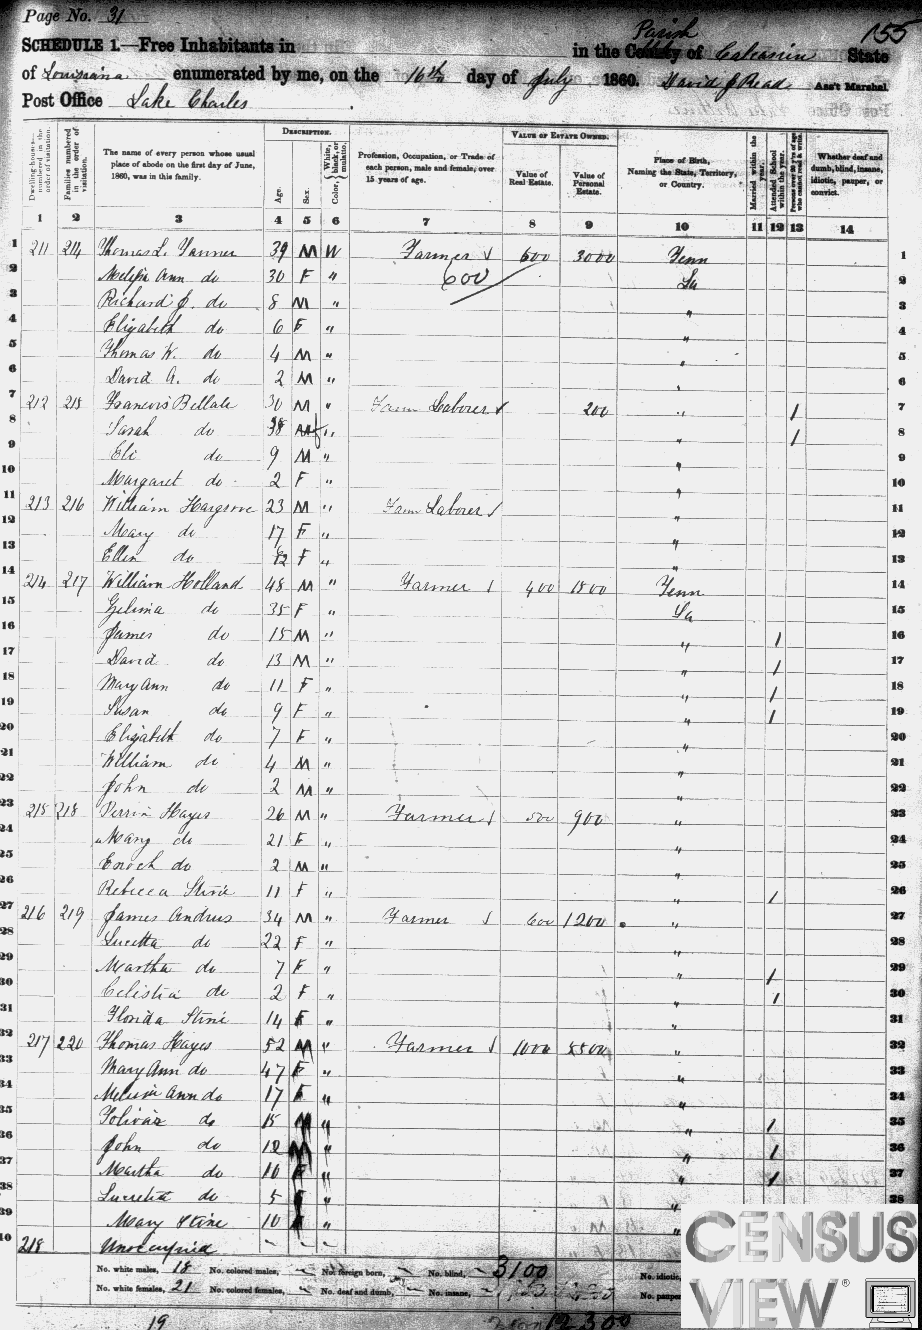 Page No. 31
155
SCHEDULE 1.—Free Inhabitants in in the County of Parish Calcasieu State
of Louisiana enumerated by me, on the 16th day of July 1860. David J Read Ass't Marshal
Post Office Lake Charles
DESCRIPTION. VALUE OF ESTATE OWNED.
Dwelling-houses—numbered in the order of visitation. Families numbered in the order of visitation. The name of every person whose usual place of abode on the first day of June, 1860, was in this family. Age. Sex. Color, White, black, or mulatto. Profession, Occupation, or Trade of each person, male and female, over 15 years of age. Value of Real Estate. Value of Personal Estate. Place of Birth, Naming the State, Territory, or Country. Married within the year. Attended School within the year. Persons over 20 y'rs of age who cannot read & write. Whether deaf and dumb, blind, insane, idiotic, pauper, or convict.
1 2 3 4 5 6 7 8 9 10 11 12 13 14
1 211 214 Thomas L. Tanner 39 M W Farmer 600 3000 Tenn 1
2 Ann do 30 F " 600 La 2
3 Richard J. do 8 M " " 3
4 Elizabeth do 6 F " " 4
5 Thomas W. do 4 M " " 5
6 David A. do 2 M " " 6
7 212 215 Francois Bellale 30 M " Farm Laborer 200 " 1 7
8 Sarah do 38 f " " 1 8
9 Eli do 9 M " " 9
10 Margaret do 2 F " " 10
11 213 216 William Hargrove 23 M " Farm Laborer " 11
12 Mary do 17 F " " 12
13 Ellen do F " " 13
14 214 217 William Holland 48 M " Farmer 400 1500 Tenn 14
15 Zelima do 35 F " La 15
16 James do 15 M " " 1 16
17 David do 13 M " " 1 17
18 Mary Ann do 11 F " " 1 18
19 Susan do 9 F " " 1 19
20 Elizabeth do 7 F " " 20
21 William do 4 M " " 21
22 John do 2 M " " 22
23 215 218 Perrin Hayes 26 M " Farmer 500 900 " 23
24 Mary do 21 F " " 24
25 Enoch do 2 M " " 25
26 Rebecca Stine 11 F " " 1 26
27 216 219 James Andrus 34 M " Farmer 600 1200 " 27
28 Lucetta do 22 F " " 28
29 Martha do 7 F " " 1 29
30 Celistia do 2 F " " 1 30
31 Florida Stine 14 F " " 31
32 217 220 Thomas Hayes 52 M " Farmer 1000 5500 " 32
33 Mary Ann do 47 F " " 33
34 Ann do 17 F " " 34
35 do 15 M " " 1 35
36 John do 12 M " " 1 36
37 Martha do 10 F " " 1 37
38 Lucretia do 5 F " " 38
39 Mary Stine 10 F " "
40 218 Unoccupied
No. white males, 18 No. colored males, No. foreign born, No. blind, 3100 No. idiotic,
No. white females, 21 No. colored females, No. deaf and dumb, No. insane,
19 12300
CENSUS
VIEW®